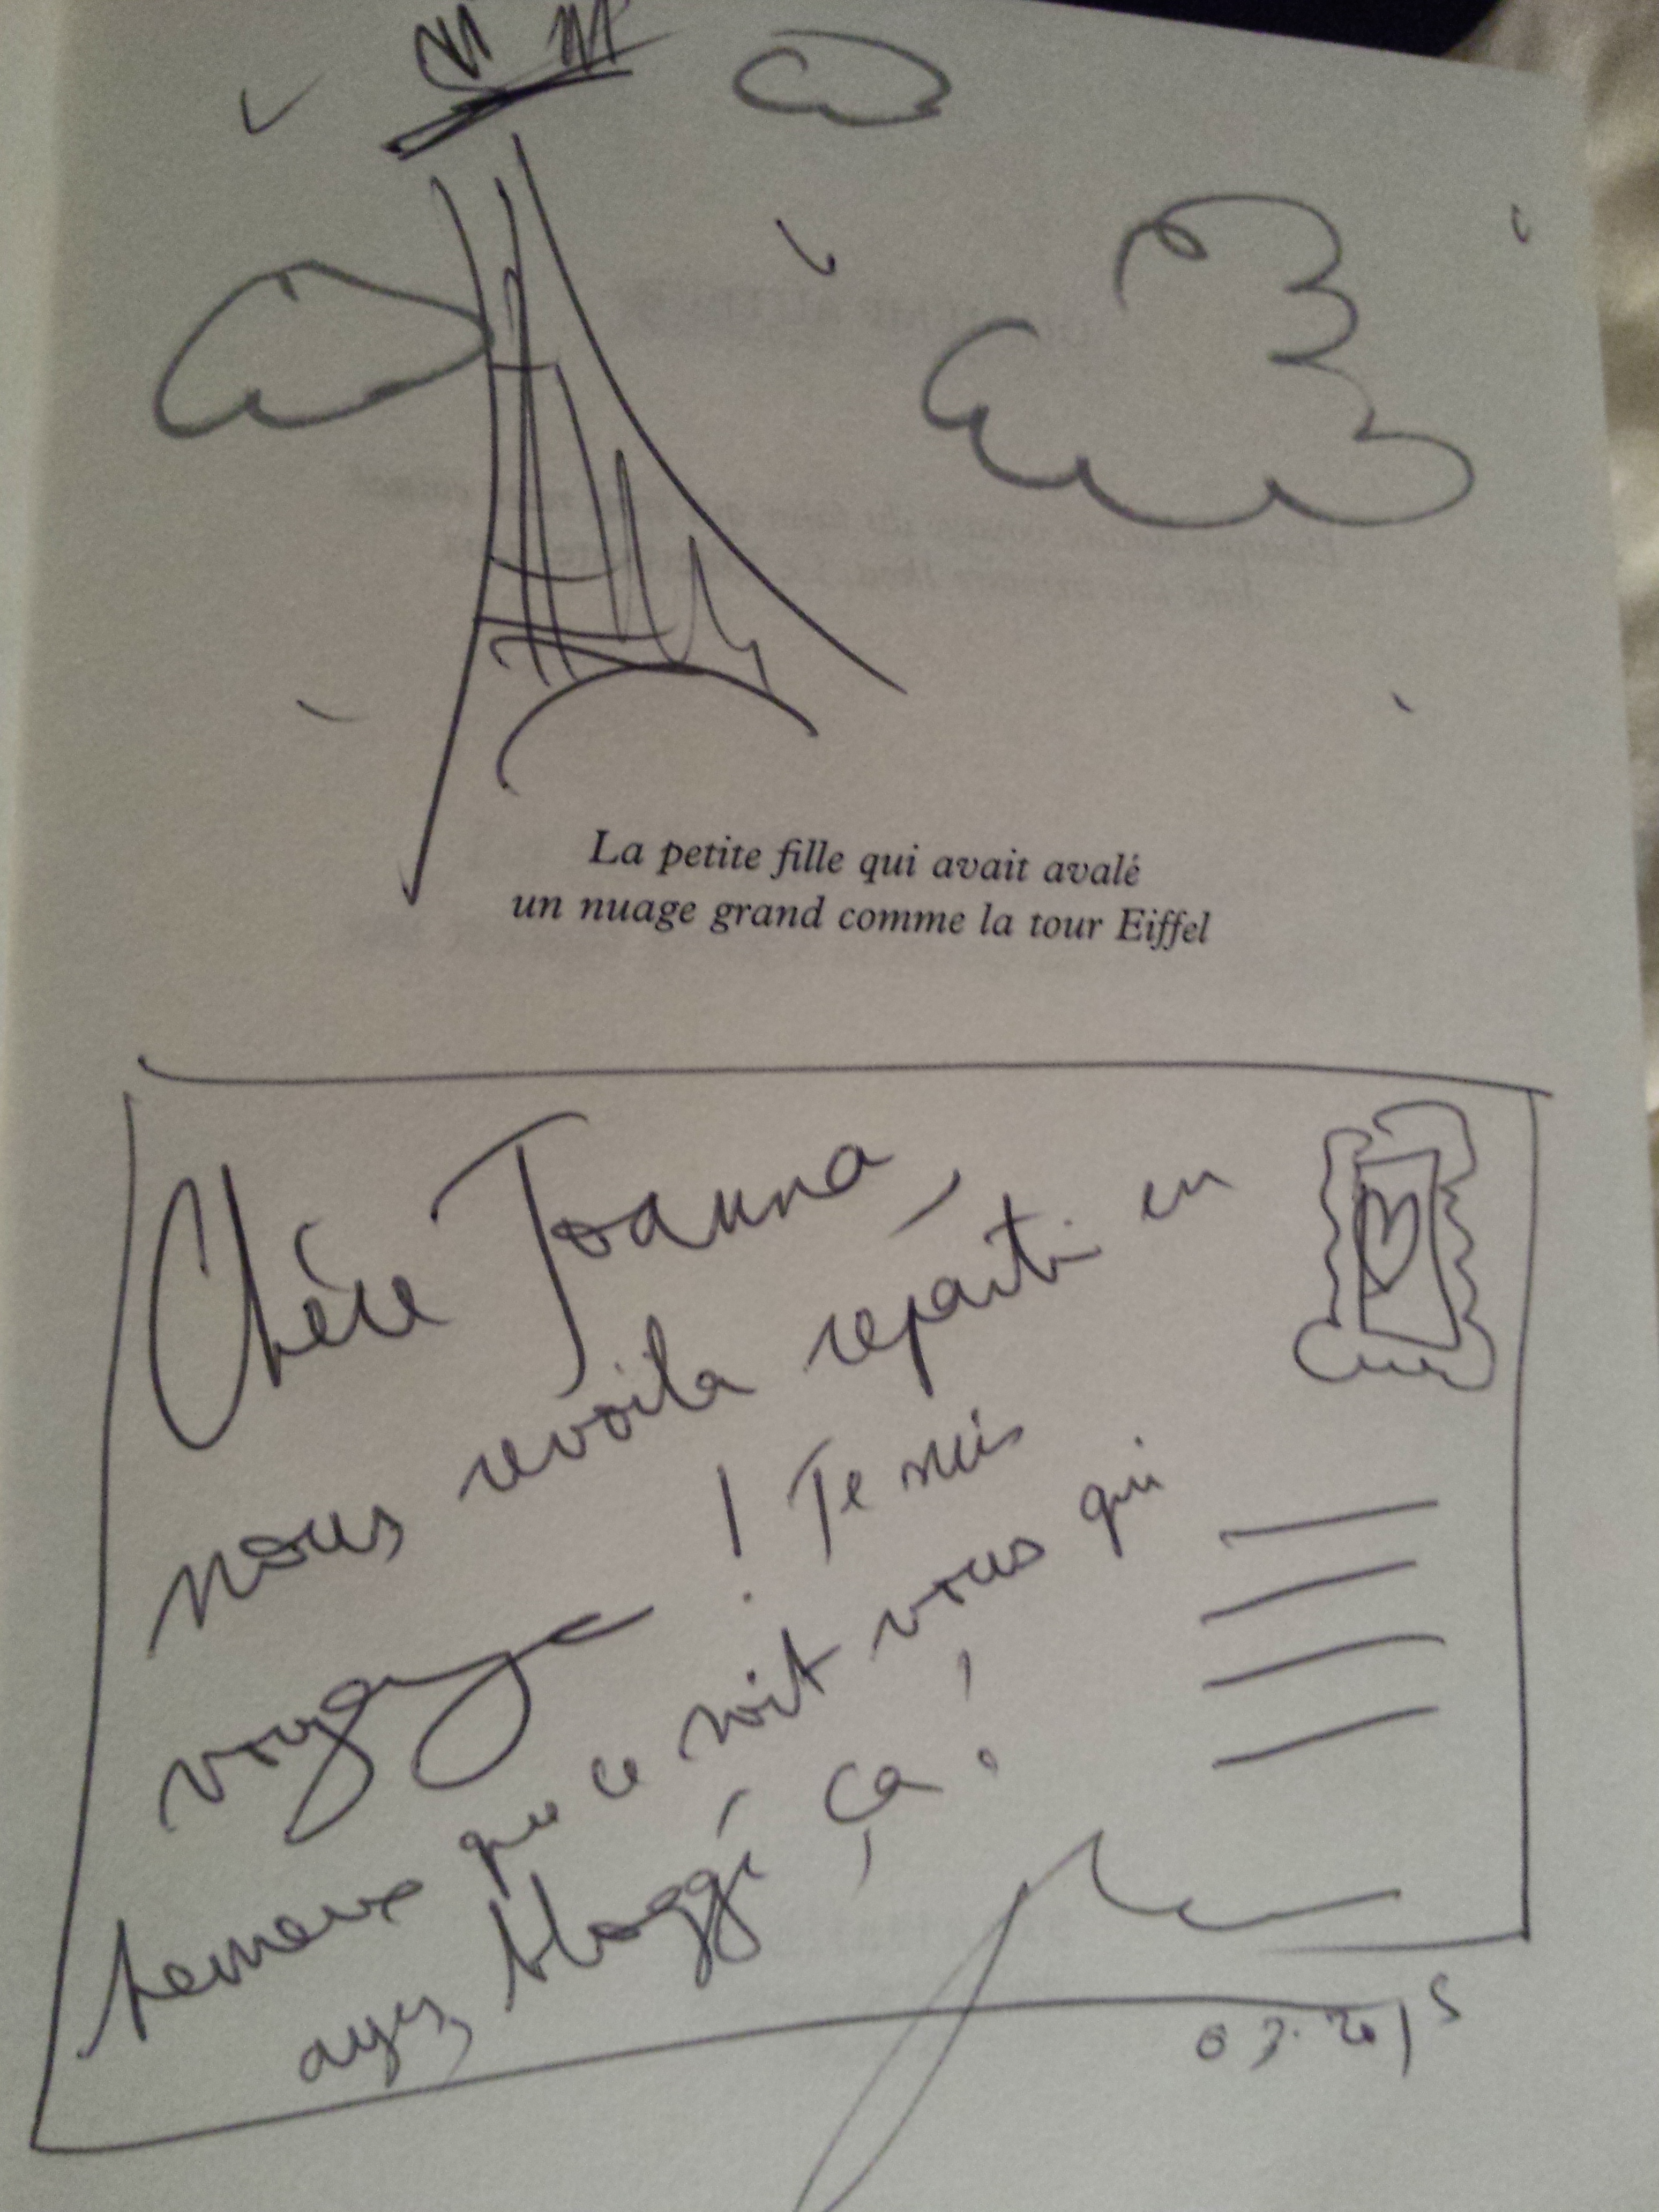 La petite fille qui avait avalé
un nuage grand comme la tour Eiffel
Chère Joanna,
nous revoila reparti en
voyage ! Je suis
heureux que ce soit vous qui
ayez bloggé ça !
03.2015